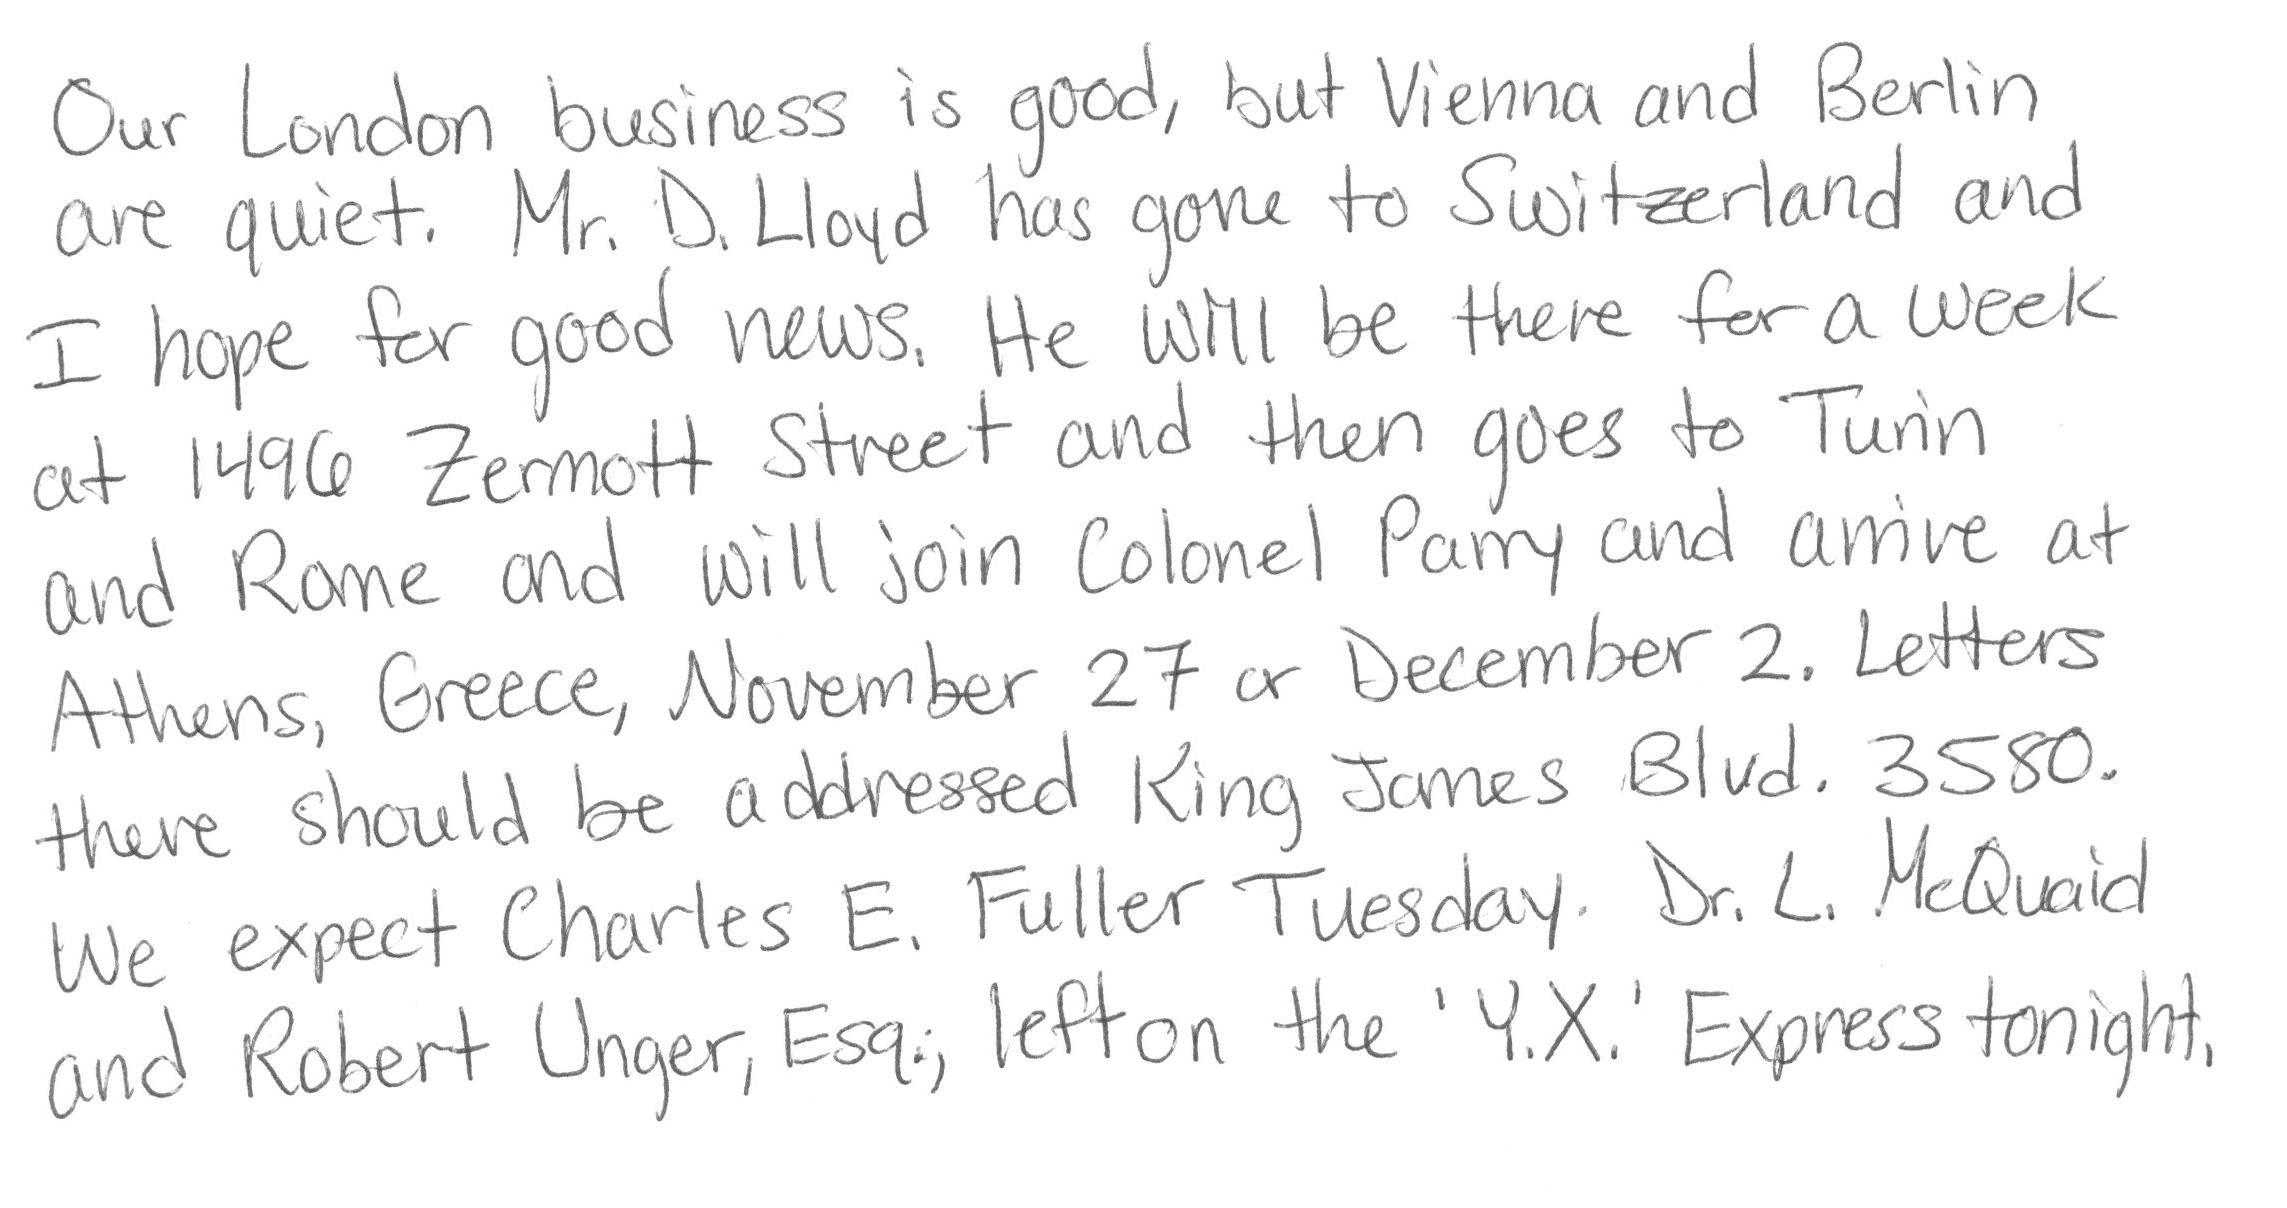 Our London business is good, but Vienna and Berlin
are quiet. Mr. D. Lloyd has gone to Switzerland and
I hope for good news. He will be there for a week
at 1496 Zermott Street and then goes to Turin
and Rome and will join Colonel Parry and arrive at
Athens, Greece, November 27 or December 2. Letters
there should be addressed King James Blvd. 3580.
We expect Charles E. Fuller Tuesday. Dr. L. McQuaid
and Robert Unger, Esq., left on the 'Y.X.' Express tonight.